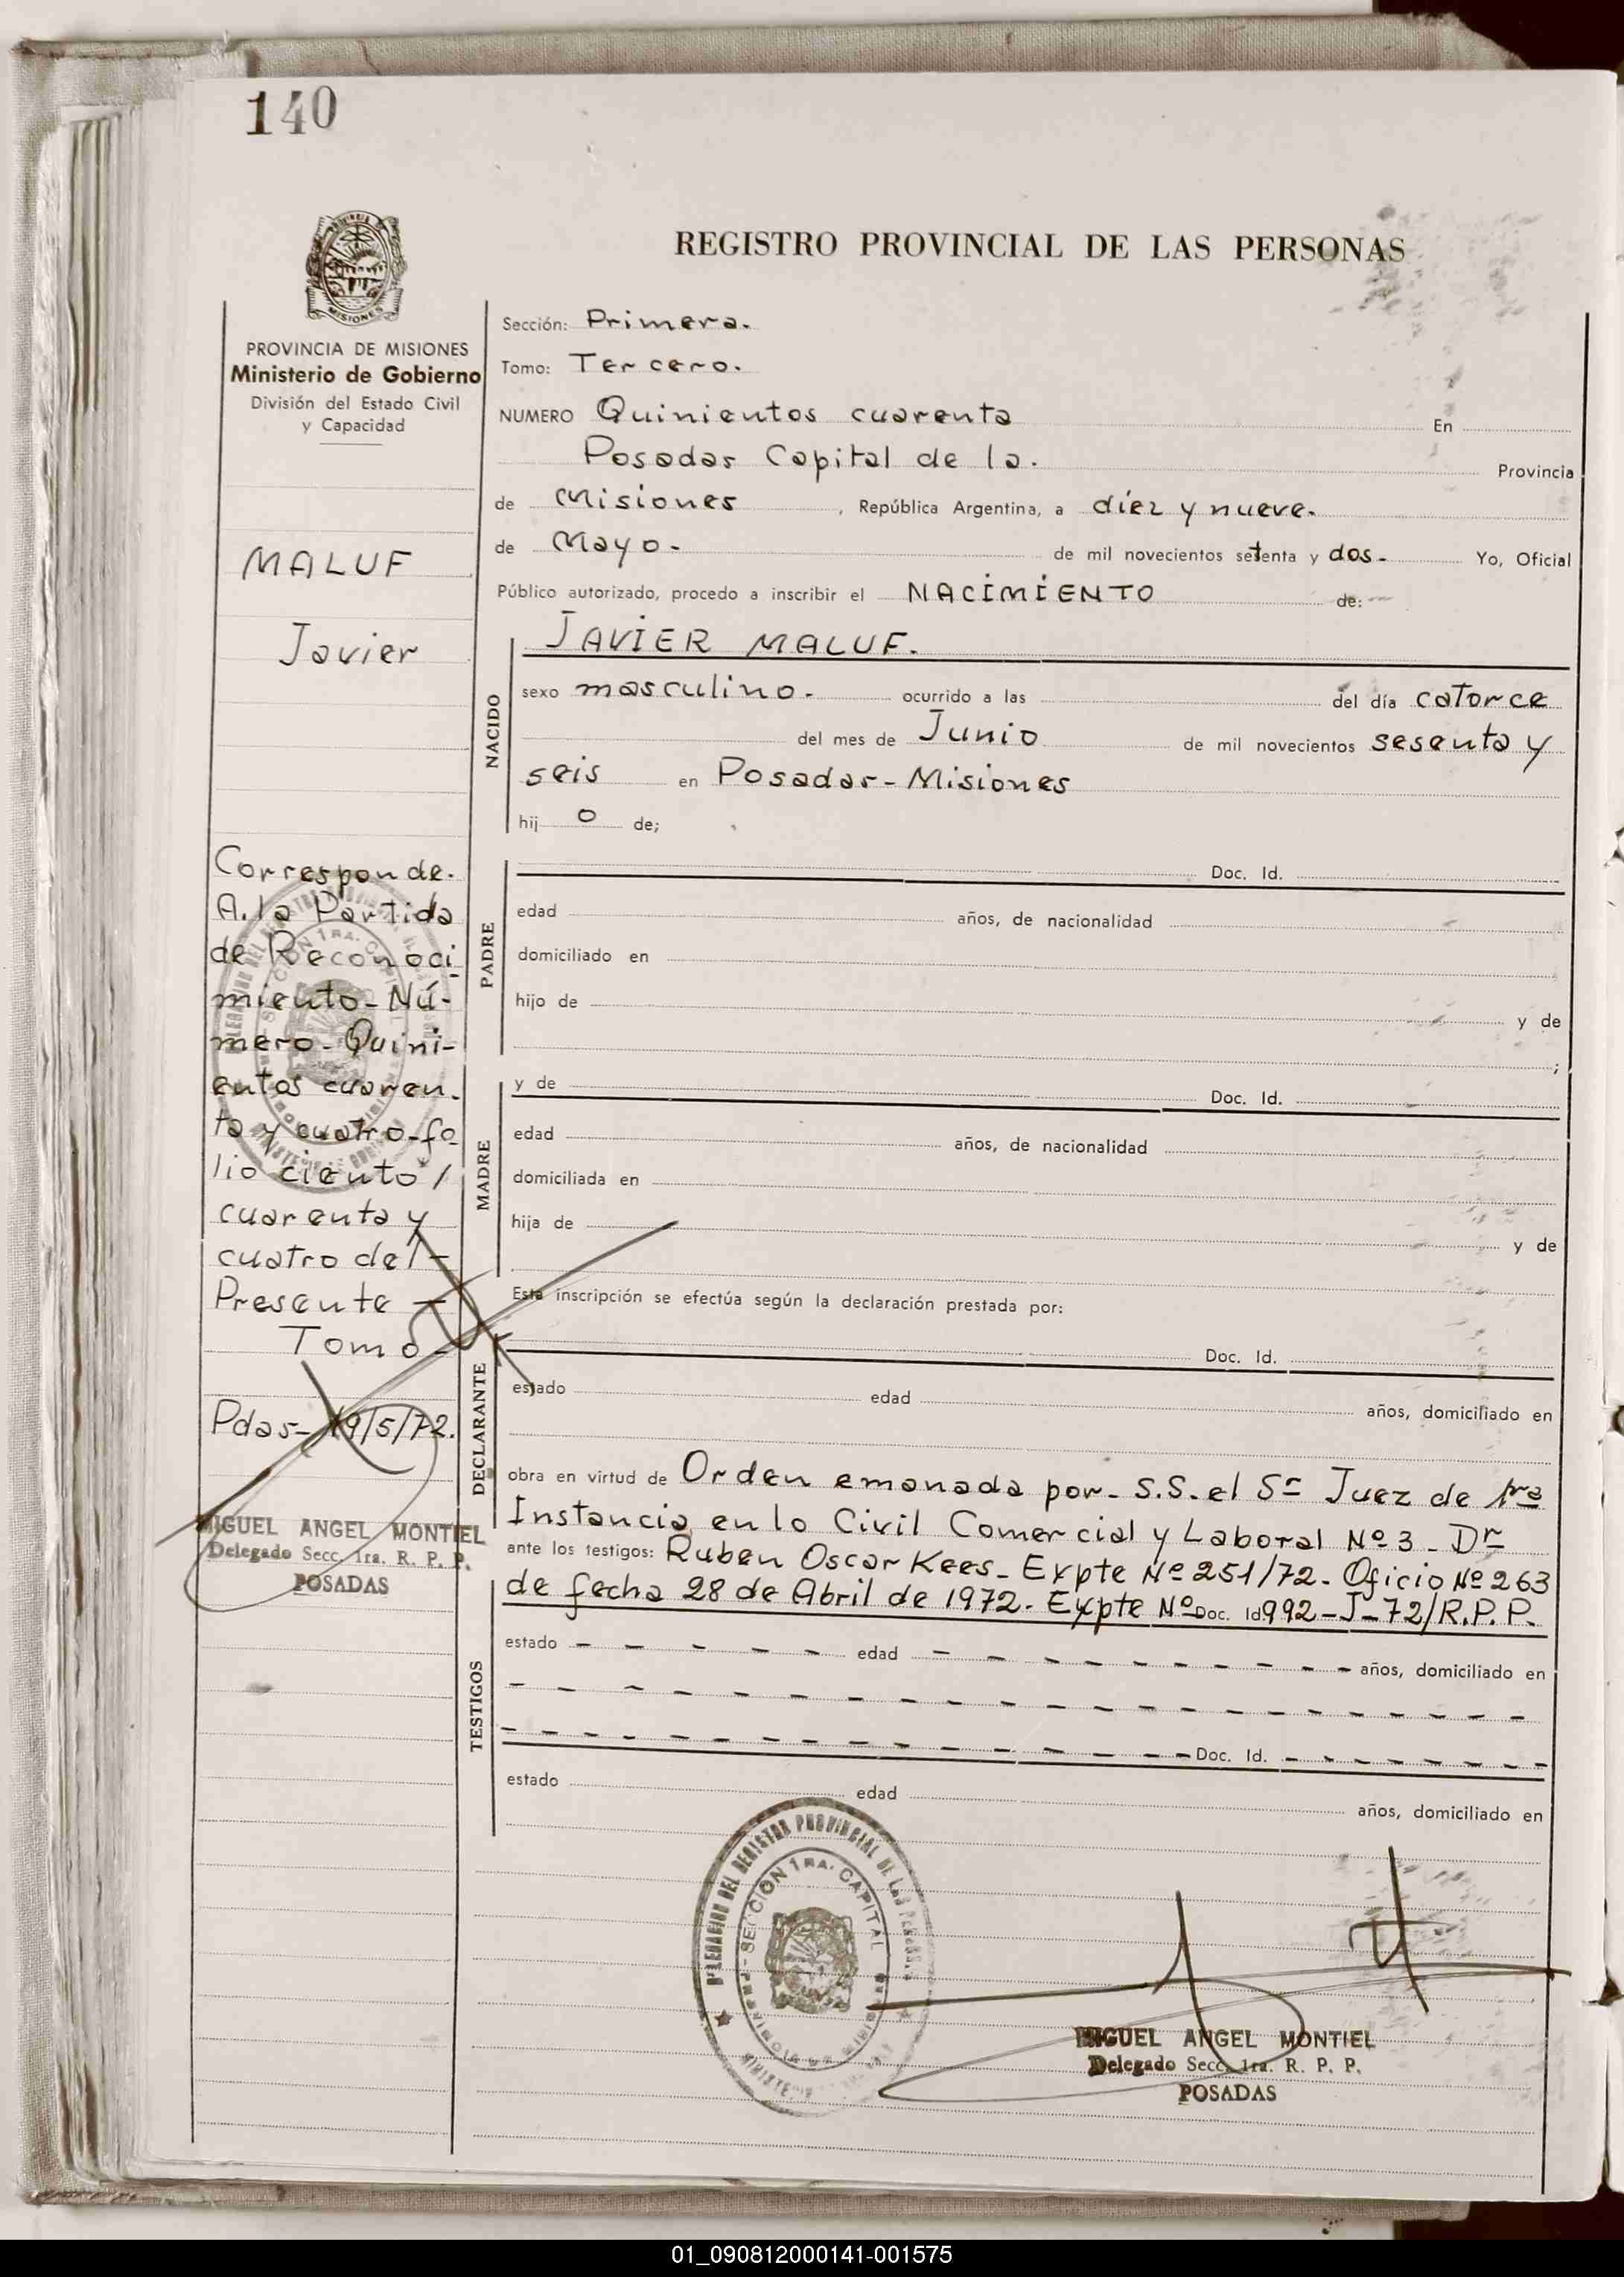 140
MISIONES
REGISTRO PROVINCIAL DE LAS PERSONAS
PROVINCIA DE MISIONES
Ministerio de Gobierno
División del Estado Civil
y Capacidad
MALUF
Javier
Corresponde.
A la Partida
de Reconoci
miento-Nú-
mero-Quini-
entos cuaren.
ta y cuatro-fo
lio ciento/
cuarenta y
cuatro del-
Presente-
Tomo-
Pdas-19/5/72.
MIGUEL ANGEL MONTIEL
Delegado Secc. 1ra. R. P. P.
POSADAS
Sección: Primera.
Tomo: Tercero.
NUMERO Quinientos cuarenta En
Posadas Capital de la. Provincia
de Misiones, República Argentina, a díez y nueve.
de Mayo- de mil novecientos setenta y dos- Yo, Oficial
Público autorizado, procedo a inscribir el NACIMIENTO de:
NACIDO
JAVIER MALUF.
sexo masculino.- ocurrido a las del día catorce
del mes de Junio de mil novecientos sesenta y
seis en Posadas-Misiones
hij o de;
PADRE
Doc. Id.
edad años, de nacionalidad
domiciliado en
hijo de y de
;
MADRE
y de Doc. Id.
edad años, de nacionalidad
domiciliada en
hija de y de
Esta inscripción se efectúa según la declaración prestada por:
DECLARANTE
Doc. Id.
estado edad años, domiciliado en
obra en virtud de Orden emanada por- S.S. el Sr Juez de 1ra
Instancia en lo Civil Comercial y Laboral Nº 3- Dr
ante los testigos: Ruben Oscar Kees- Expte Nº 251/72- Oficio Nº 263
de fecha 28 de Abril de 1972- Expte Nº Doc. Id 992-J-72/R.P.P.
TESTIGOS
estado - - - - - edad - - - - - - - - años, domiciliado en
- - - - - - - - - - - - - - - - - -
- - - - - - - - - - - - - Doc. Id. - - - - - - -
estado edad años, domiciliado en
DELEGACION DEL REGISTRO PROVINCIAL DE LAS PERSONAS
SECCION 1RA. CAPITAL
MIGUEL ANGEL MONTIEL
Delegado Secc. 1ra. R. P. P.
POSADAS
01_090812000141-001575